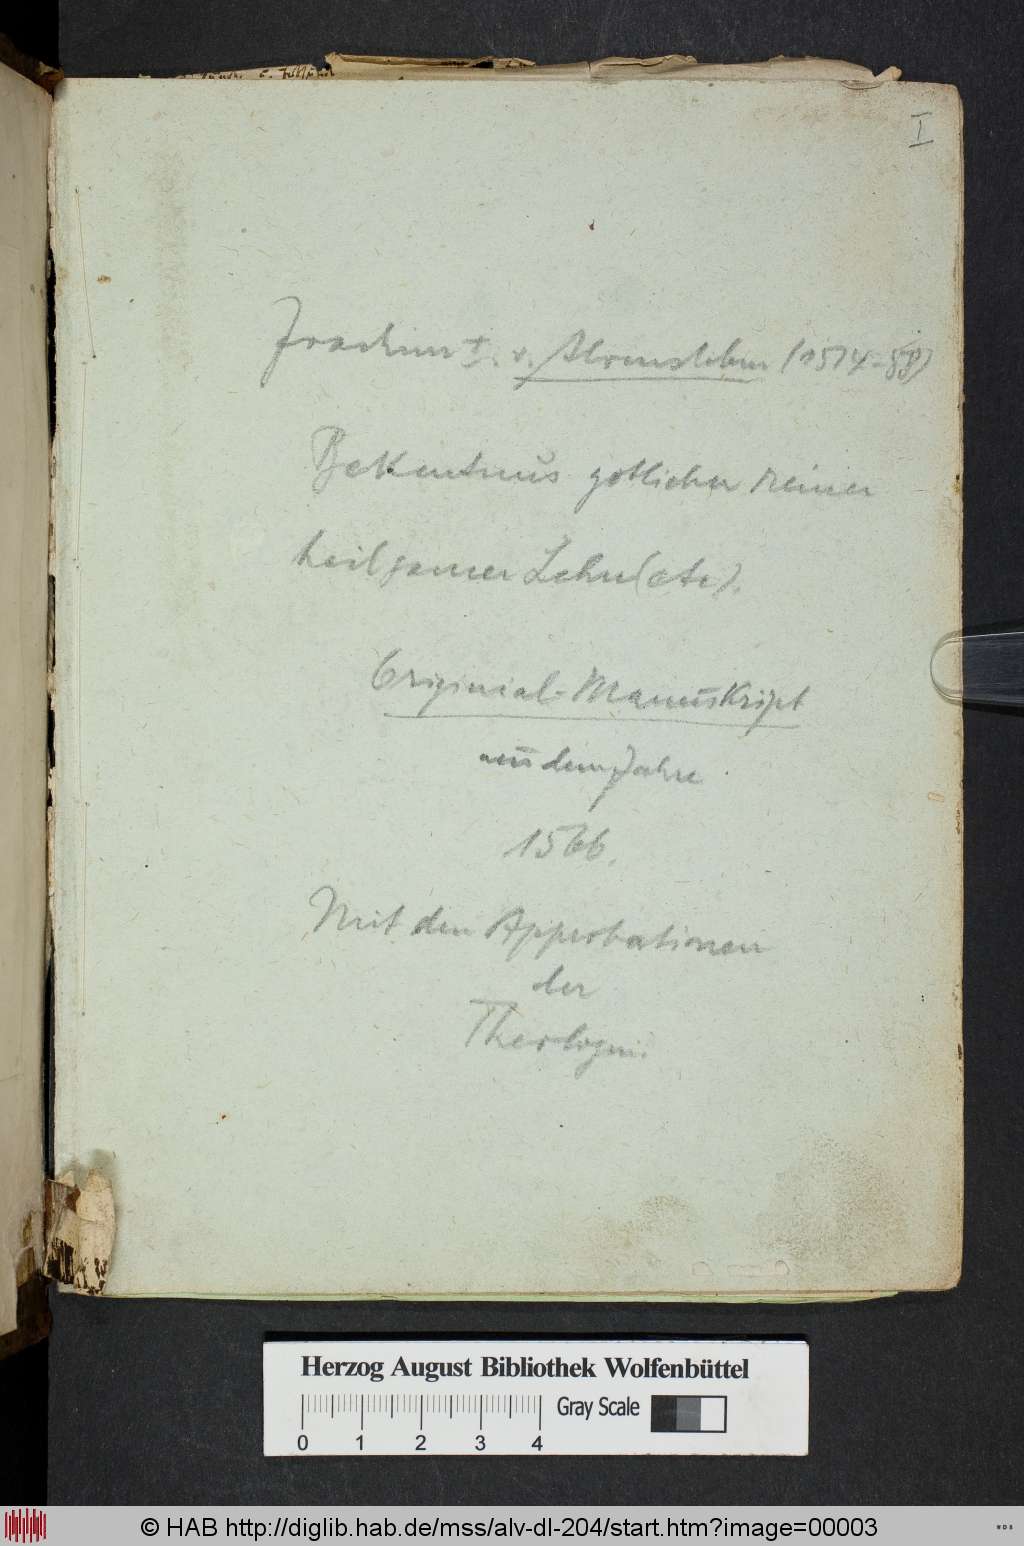 I
Joachim I. v. Alvensleben (1514-88)
Bekentnus gotlicher reiner
heilsamer Lehr (etc).
Original-Manuskript
aus dem Jahre
1566.
Mit den Approbationen
der
Theologen.
Herzog August Bibliothek Wolfenbüttel
Gray Scale
0 1 2 3 4
© HAB http://diglib.hab.de/mss/alv-dl-204/start.htm?image=00003